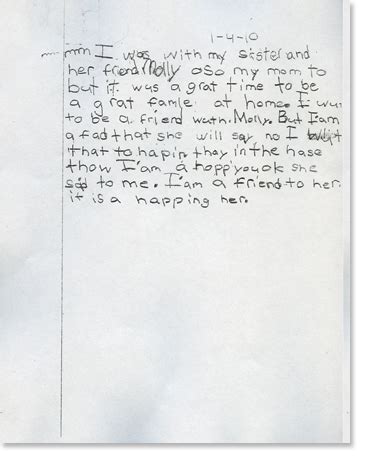 1-4-10
I was with my sister and
her frend Molly oso my mom to
but it was a grat time to be
a grat famle at home. I wut
to be a friend weth Molly. But I am
a fad that she will say no I
that to hapin they in the hase
thow I'am a hoppi you ok she
sed to me. I'am a friend to her.
it is a happing her.